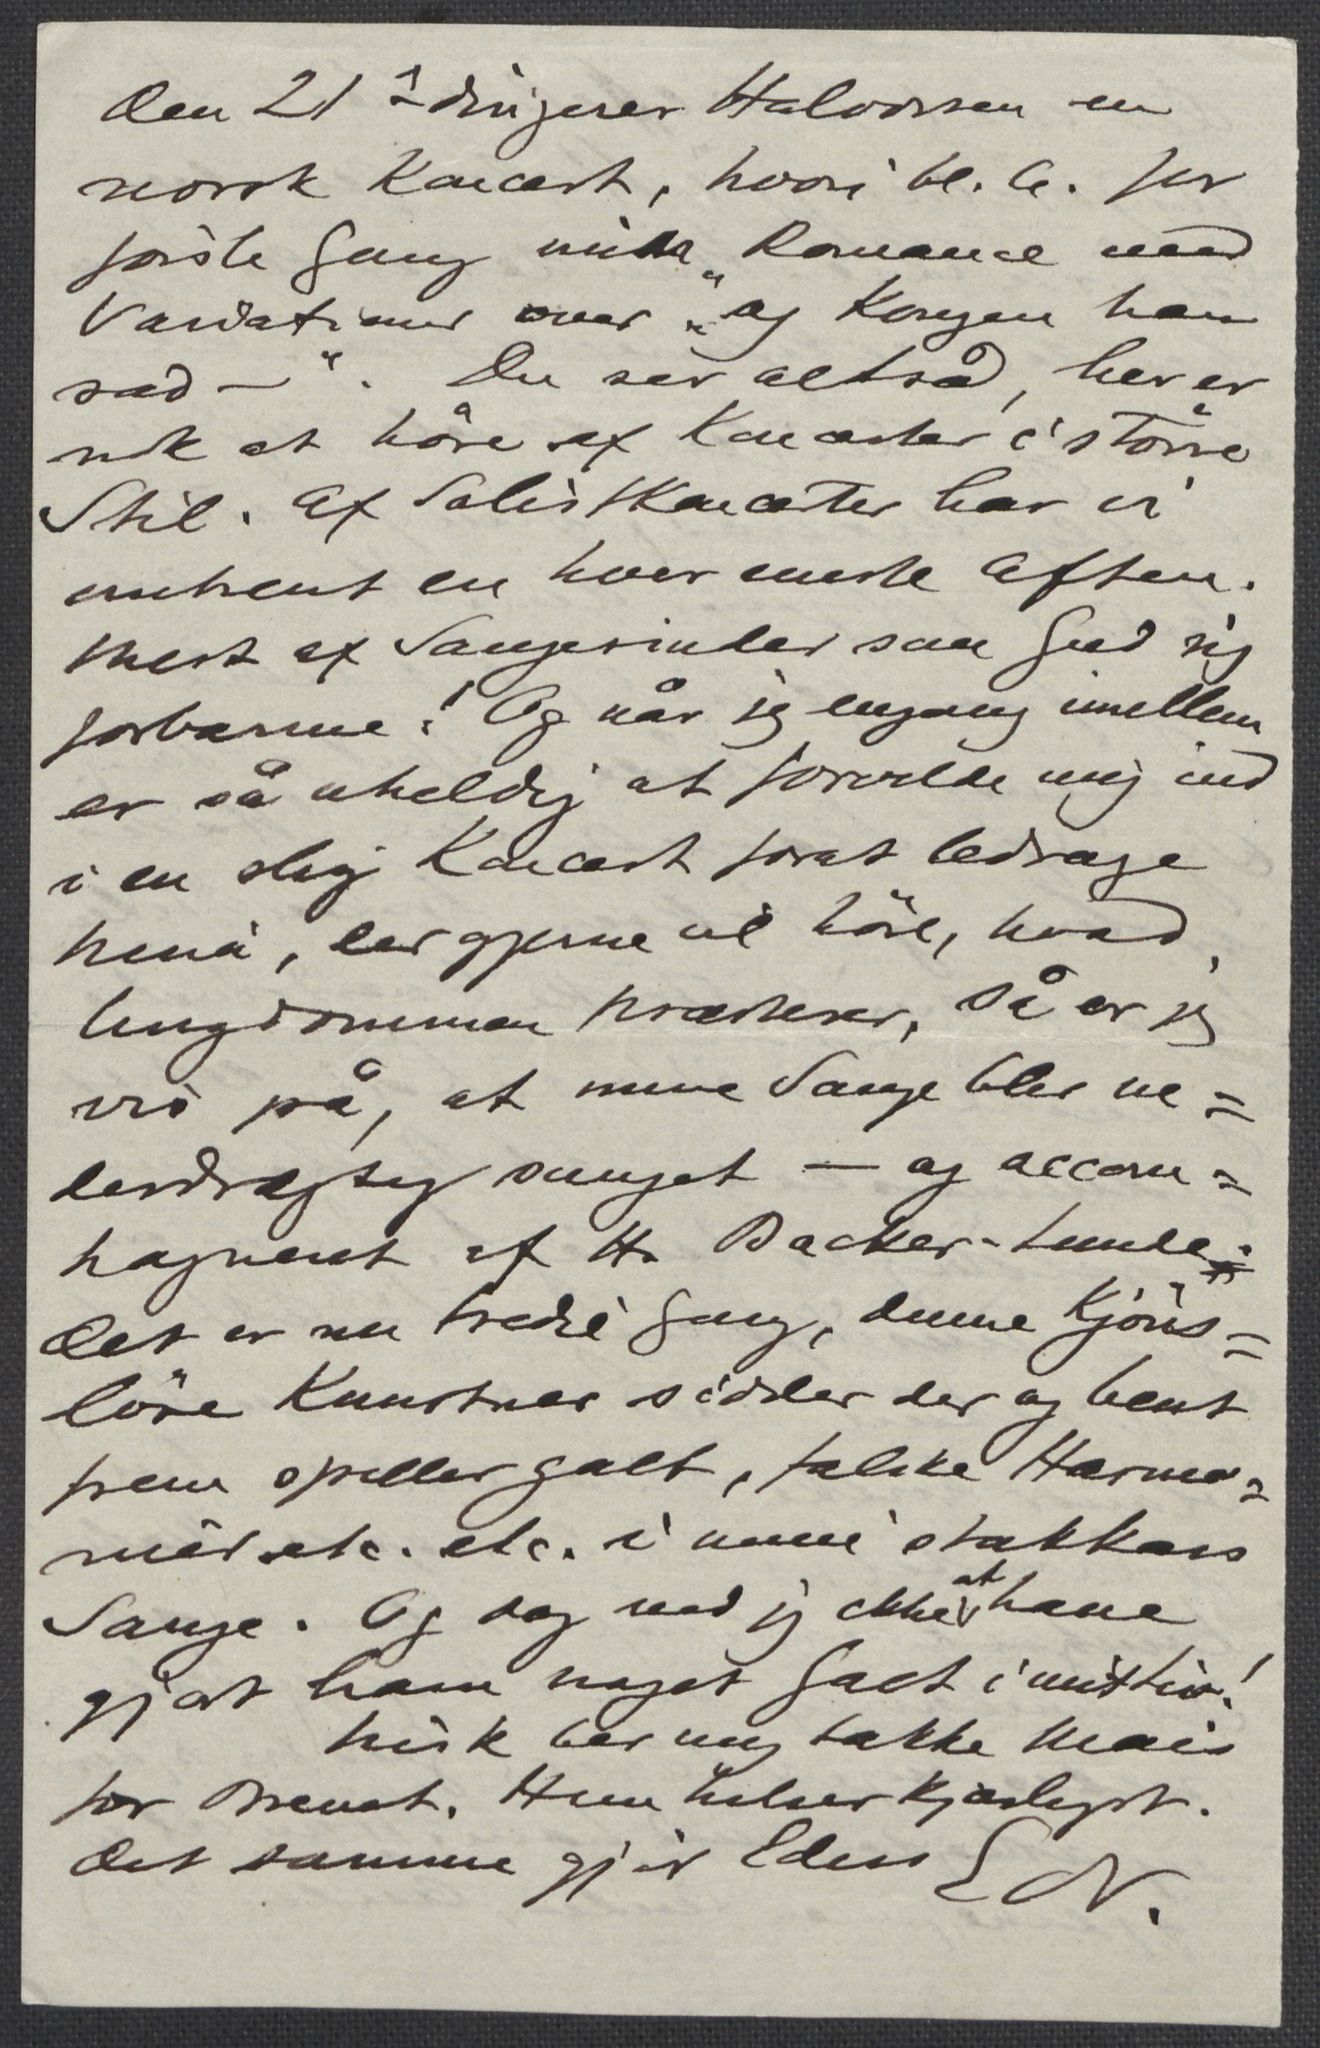 Den 21de dirigerer Halvorsen en
norsk Koncert, hvori bl. A. for
förste Gang min Romance med
Variationer over "og Kongen han
sad –". Du ser altså, her er
nok at höre af Koncerter i större
Stil. Af Solistkoncerter har vi
omtrent en hver eneste Aften.
Mest af Sangerinder som Gud sig
forbarme! Og når jeg engang imellem
er så uheldig at forvilde mig ind
i en slig Koncert forat ledsage
Nina, der gjerne vil höre, hvad
Ungdommen præsterer, så er jeg
vis på, at mine Sange blir ne=
derdrægtig sunget – og accom=
pagneret af Hr Backer-Lunde.
Det er nu tredie Gang, denne kjöns=
löse Kunstner sidder der og bent
frem spiller galt, falske Harmo=
nier etc. etc. i mine stakkars
Sange. Og dog ved jeg ikke at have
gjort ham noget Galt i mit Liv!
Nisk ber mig takke Mais
for Brevet. Hun hilser kjærligst.
Det samme gjör Eders E